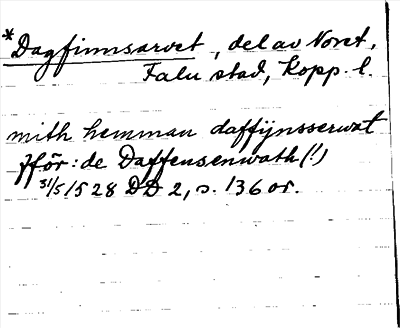 *Dagfinnsarvet, del av Noret,
Falu stad, Kopp. l.
mith hemman daffijnsserwat
Jför: de Daffensenwath(!)
31/5 1528 DD 2, s. 136 or.